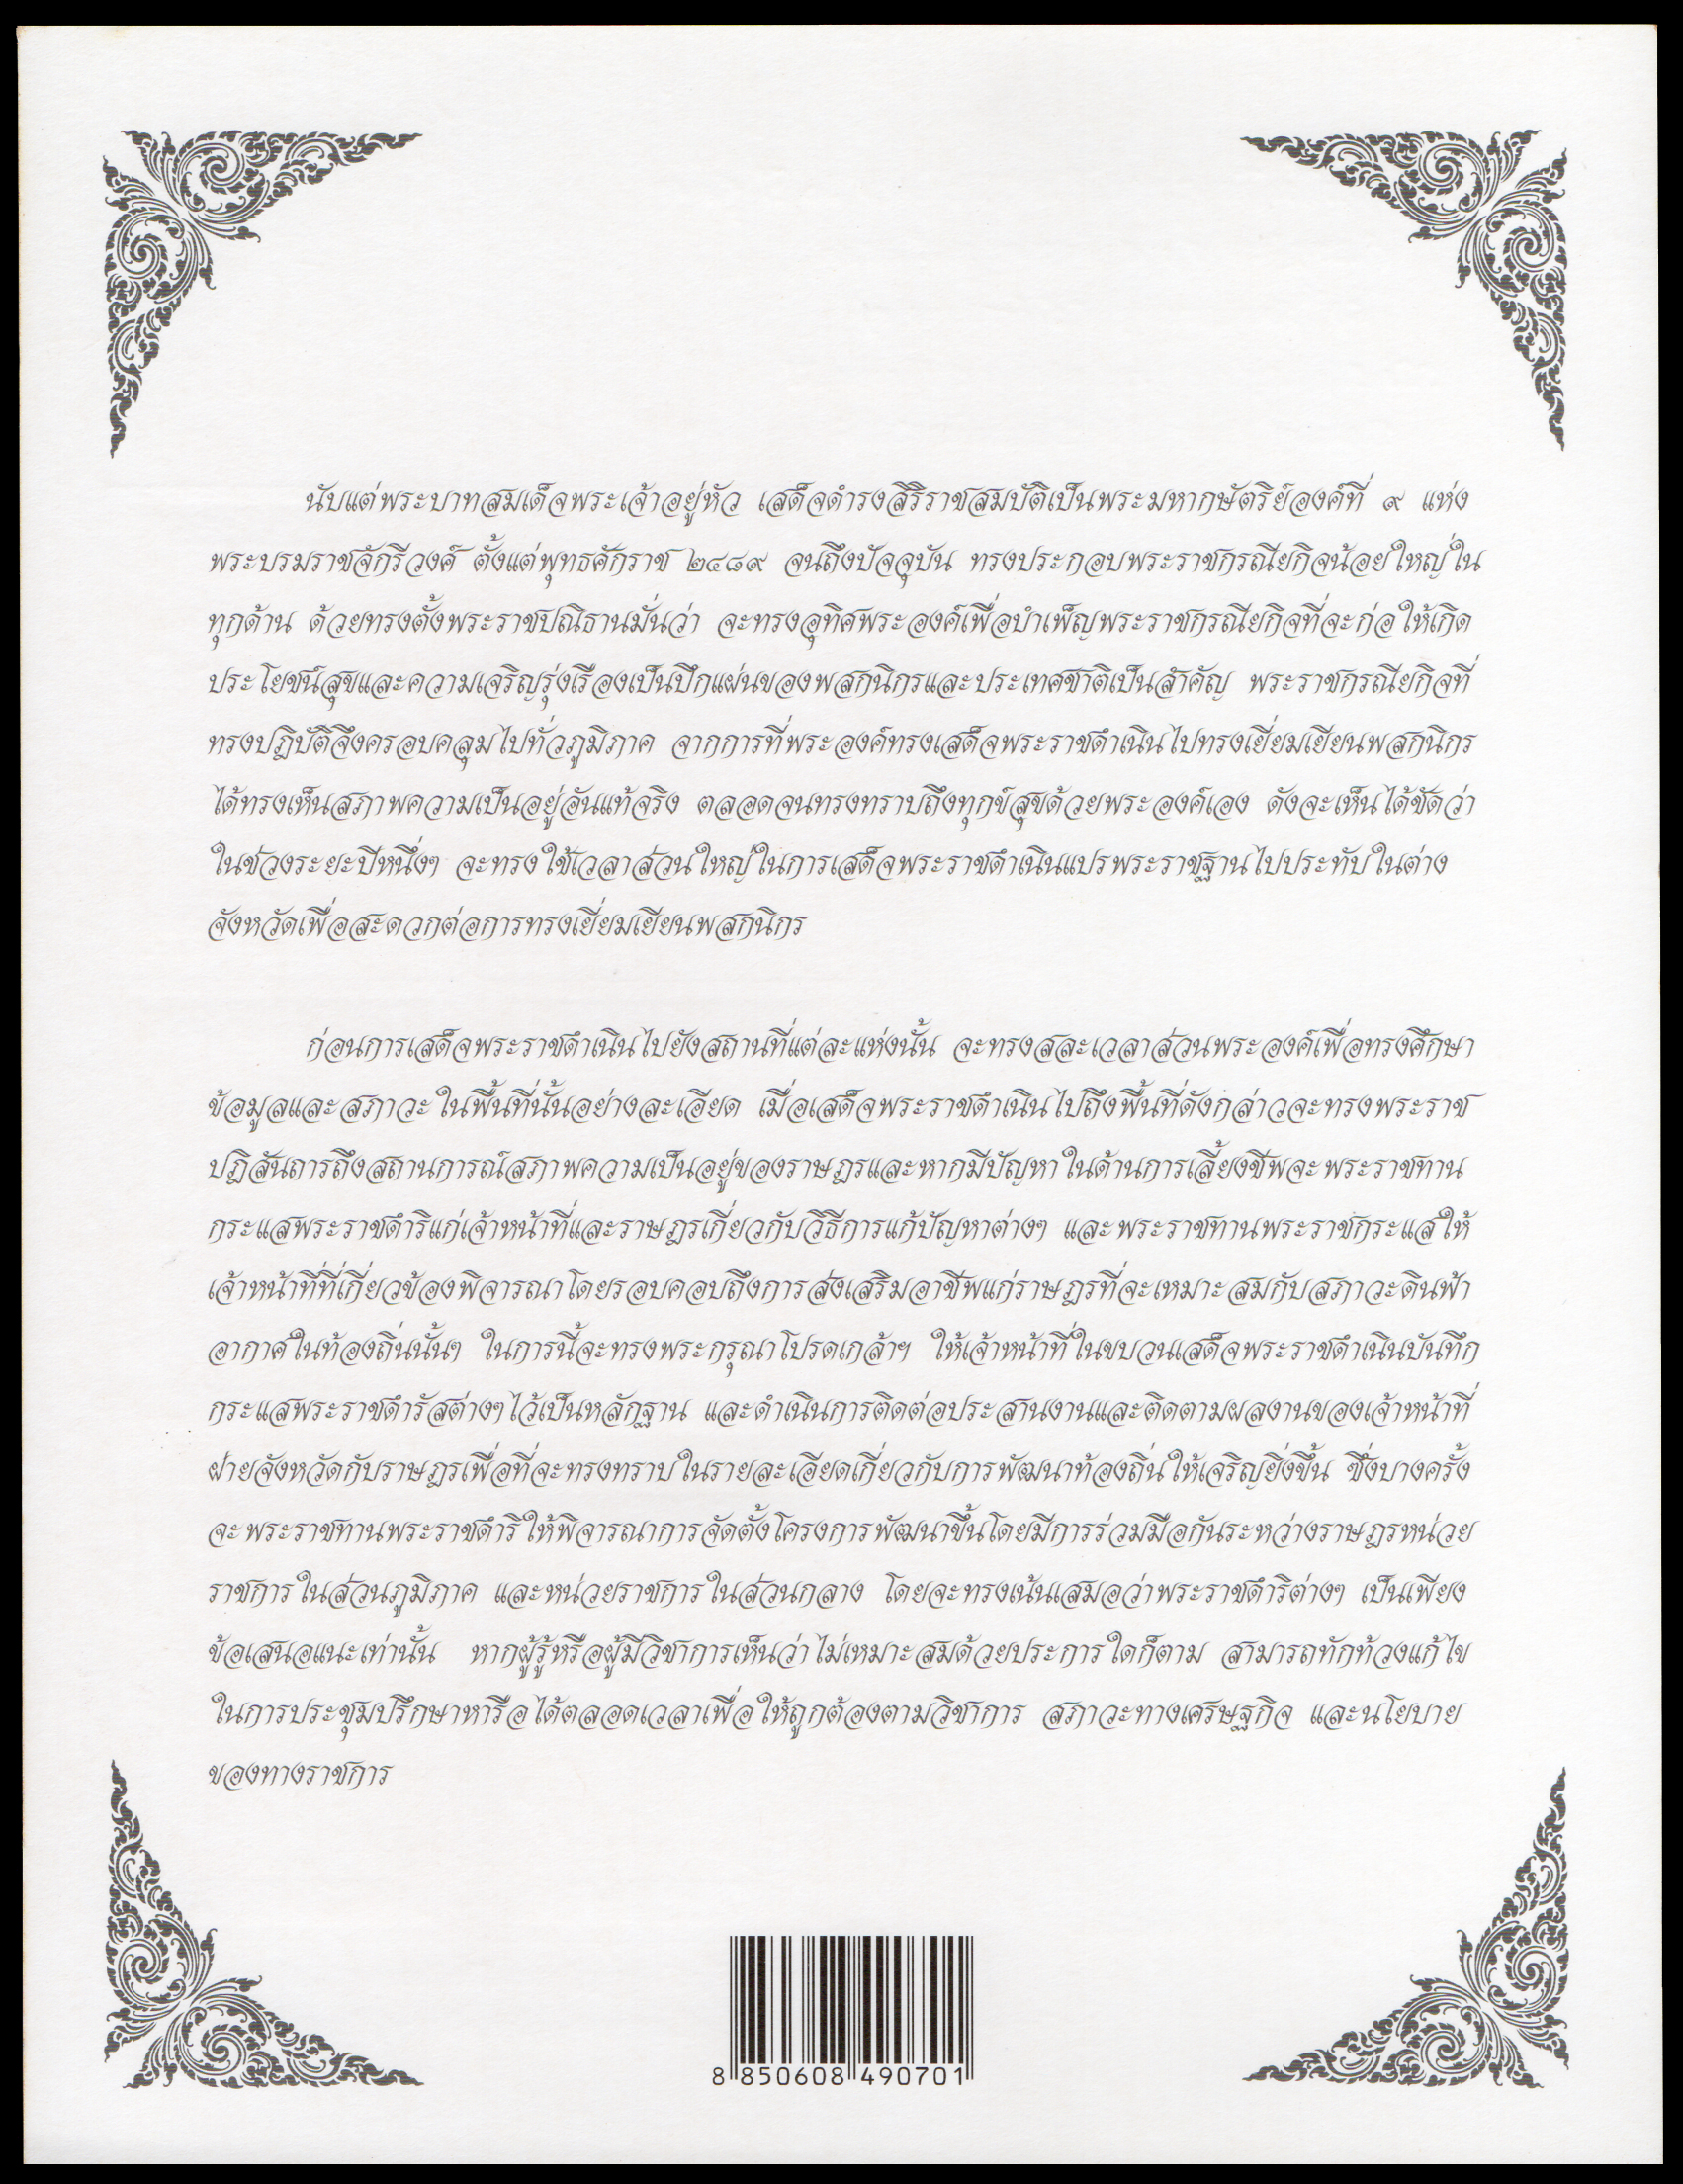 นับแต่พระบาทสมเด็จพระเจ้าอยู่หัว เสด็จดำรงสิริราชสมบัติเป็นพระมหากษัตริย์องค์ที่ ๙ แห่ง
พระบรมราชจักรีวงศ์ ตั้งแต่พุทธศักราช ๒๔๘๙ จนถึงปัจจุบัน ทรงประกอบพระราชกรณียกิจน้อยใหญ่ใน
ทุกด้าน ด้วยทรงตั้งพระราชปณิธานมั่นว่า จะทรงอุทิศพระองค์เพื่อบำเพ็ญพระราชกรณียกิจที่จะก่อให้เกิด
ประโยชน์สุขและความเจริญรุ่งเรืองเป็นปึกแผ่นของพสกนิกรและประเทศชาติเป็นสำคัญ พระราชกรณียกิจที่
ทรงปฏิบัติจึงครอบคลุมไปทั่วภูมิภาค จากการที่พระองค์ทรงเสด็จพระราชดำเนินไปทรงเยี่ยมเยียนพสกนิกร
ได้ทรงเห็นสภาพความเป็นอยู่อันแท้จริง ตลอดจนทรงทราบถึงทุกข์สุขด้วยพระองค์เอง ดังจะเห็นได้ชัดว่า
ในช่วงระยะปีหนึ่งๆ จะทรงใช้เวลาส่วนใหญ่ในการเสด็จพระราชดำเนินแปรพระราชฐานไปประทับในต่าง
จังหวัดเพื่อสะดวกต่อการทรงเยี่ยมเยียนพสกนิกร
ก่อนการเสด็จพระราชดำเนินไปยังสถานที่แต่ละแห่งนั้น จะทรงสละเวลาส่วนพระองค์เพื่อทรงศึกษา
ข้อมูลและสภาวะในพื้นที่นั้นอย่างละเอียด เมื่อเสด็จพระราชดำเนินไปถึงพื้นที่ดังกล่าวจะทรงพระราช
ปฏิสันถารถึงสถานการณ์สภาพความเป็นอยู่ของราษฎรและหากมีปัญหาในด้านการเลี้ยงชีพจะพระราชทาน
กระแสพระราชดำริแก่เจ้าหน้าที่และราษฎรเกี่ยวกับวิธีการแก้ปัญหาต่างๆ และพระราชทานพระราชกระแสให้
เจ้าหน้าที่ที่เกี่ยวข้องพิจารณาโดยรอบคอบถึงการส่งเสริมอาชีพแก่ราษฎรที่จะเหมาะสมกับสภาวะดินฟ้า
อากาศในท้องถิ่นนั้นๆ ในการนี้จะทรงพระกรุณาโปรดเกล้าฯ ให้เจ้าหน้าที่ในขบวนเสด็จพระราชดำเนินบันทึก
กระแสพระราชดำรัสต่างๆไว้เป็นหลักฐาน และดำเนินการติดต่อประสานงานและติดตามผลงานของเจ้าหน้าที่
ฝ่ายจังหวัดกับราษฎรเพื่อที่จะทรงทราบในรายละเอียดเกี่ยวกับการพัฒนาท้องถิ่นให้เจริญยิ่งขึ้น ซึ่งบางครั้ง
จะพระราชทานพระราชดำริให้พิจารณาการจัดตั้งโครงการพัฒนาขึ้นโดยมีการร่วมมือกันระหว่างราษฎรหน่วย
ราชการในส่วนภูมิภาค และหน่วยราชการในส่วนกลาง โดยจะทรงเน้นเสมอว่าพระราชดำริต่างๆ เป็นเพียง
ข้อเสนอแนะเท่านั้น หากผู้รู้หรือผู้มีวิชาการเห็นว่าไม่เหมาะสมด้วยประการใดก็ตาม สามารถทักท้วงแก้ไข
ในการประชุมปรึกษาหารือได้ตลอดเวลาเพื่อให้ถูกต้องตามวิชาการ สภาวะทางเศรษฐกิจ และนโยบาย
ของทางราชการ
8 850608 490701